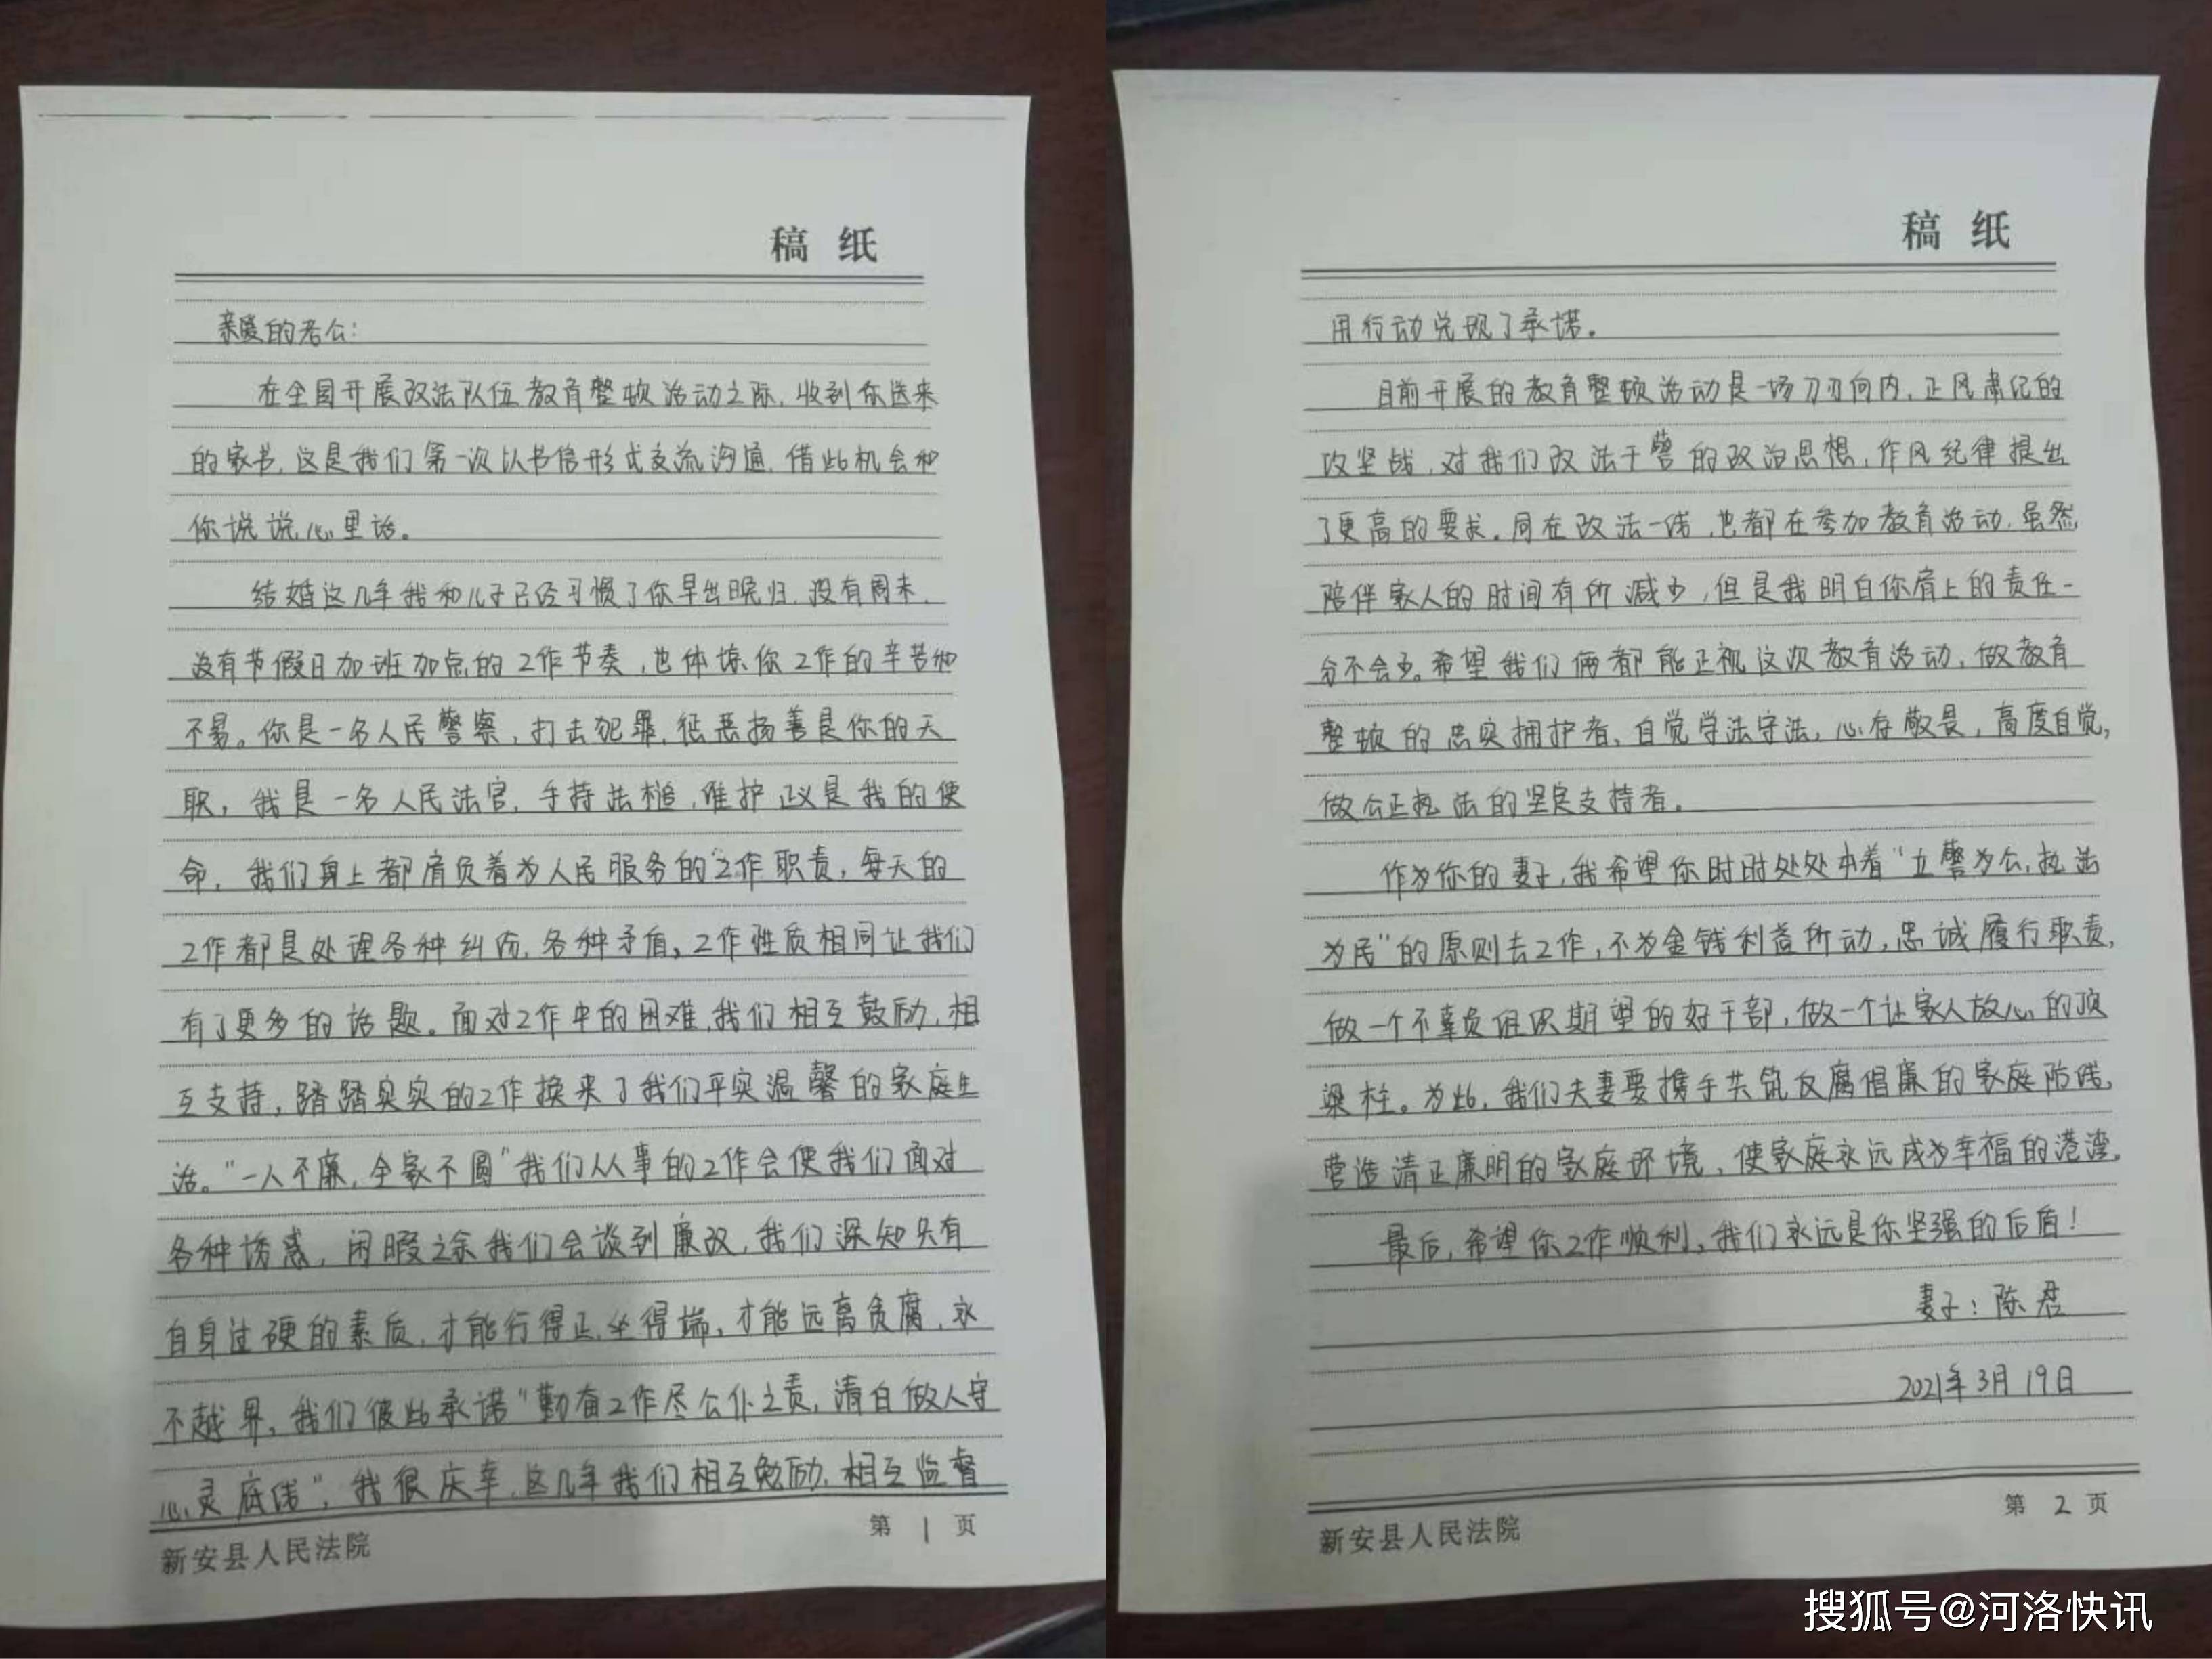 稿 纸
亲爱的老公：
在全国开展政法队伍教育整顿活动之际，收到你送来
的家书，这是我们第一次以书信形式交流沟通，借此机会和
你说说心里话。
结婚这几年我和儿子已经习惯了你早出晚归，没有周末，
没有节假日加班加点的工作节奏，也体谅你工作的辛苦和
不易。你是一名人民警察，打击犯罪，惩恶扬善是你的天
职，我是一名人民法官，手持法槌，维护正义是我的使
命，我们身上都肩负着为人民服务的工作职责，每天的
工作都是处理各种纠纷，各种矛盾，工作性质相同让我们
有了更多的话题。面对工作中的困难，我们相互鼓励，相
互支持，踏踏实实的工作换来了我们平实温馨的家庭生
活。“一人不廉，全家不圆”我们从事的工作会使我们面对
各种诱惑，闲暇之余我们会谈到廉政，我们深知只有
自身过硬的素质，才能行得正，坐得端，才能远离贪腐，永
不越界，我们彼此承诺“勤奋工作尽公仆之责，清白做人守
心灵底线”，我很庆幸，这几年我们相互勉励，相互监督
新安县人民法院
第 1 页
稿 纸
用行动兑现了承诺。
目前开展的教育整顿活动是一场刀刃向内，正风肃纪的
攻坚战，对我们政法干警的政治思想，作风纪律提出
了更高的要求。同在政法一线，也都在参加教育活动，虽然
陪伴家人的时间有所减少，但是我明白你肩上的责任一
分不会少。希望我们俩都能正视这次教育活动，做教育
整顿的忠实拥护者，自觉学法守法，心存敬畏，高度自觉，
做公正执法的坚定支持者。
作为你的妻子，我希望你时时处处本着“立警为公，执法
为民”的原则去工作，不为金钱利益所动，忠诚履行职责，
做一个不辜负组织期望的好干部，做一个让家人放心的顶
梁柱。为此，我们夫妻要携手共筑反腐倡廉的家庭防线，
营造清正廉明的家庭环境，使家庭永远成为幸福的港湾。
最后，希望你工作顺利，我们永远是你坚强的后盾！
妻子：陈君
2021年3月19日
新安县人民法院
第 2 页
搜狐号@河洛快讯